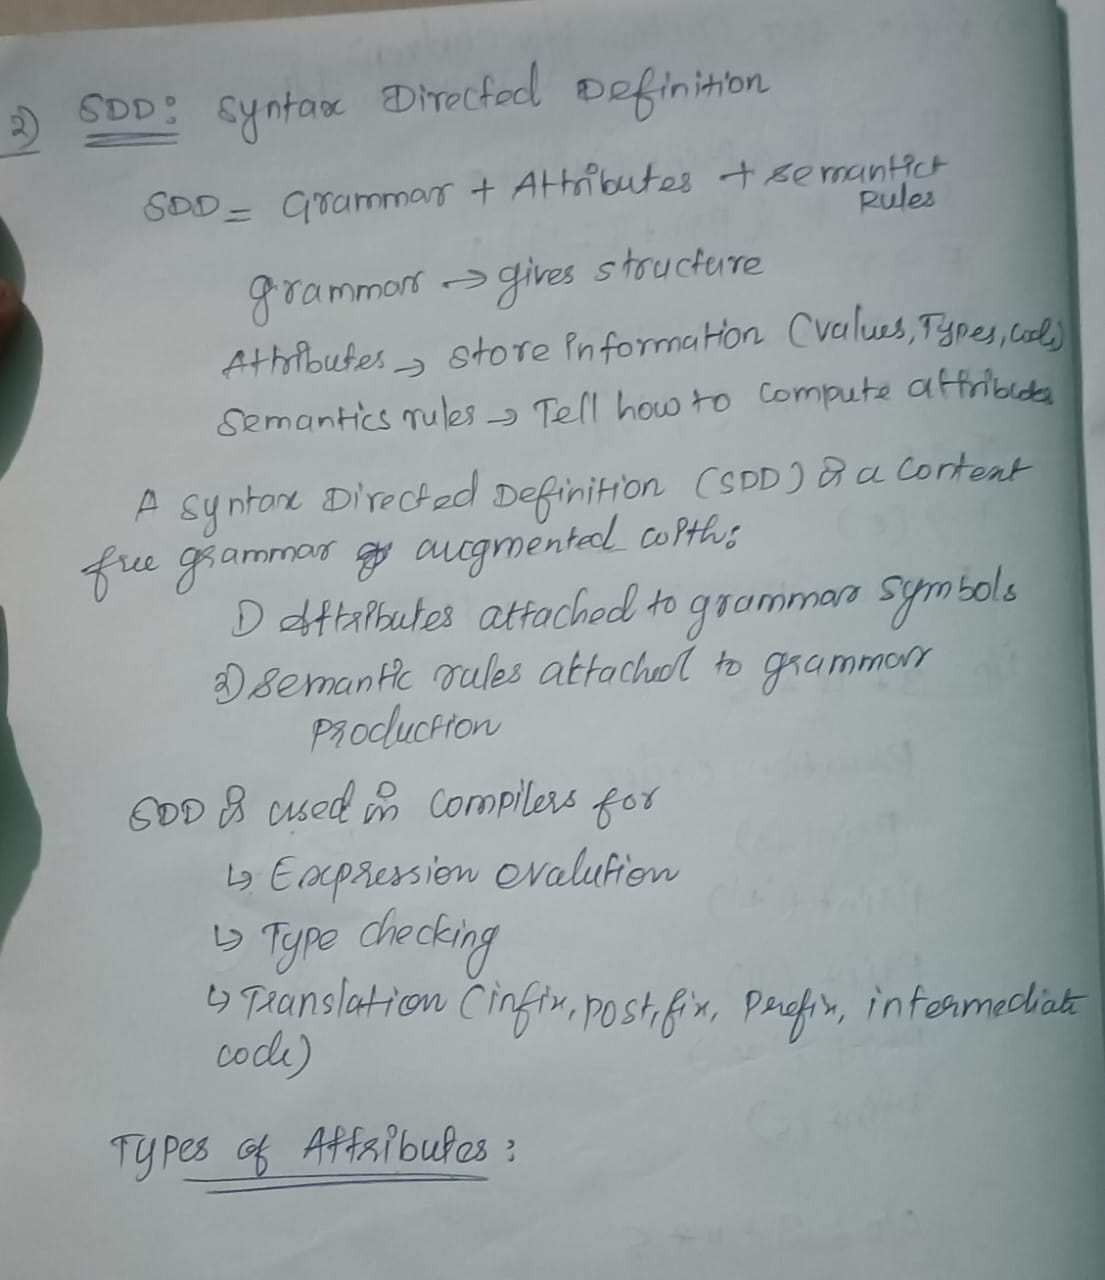 2) SDD: Syntax Directed Definition
SDD = Grammar + Attributes + semantict
Rules
grammar → gives structure
Attributes → store information (values, Types, code)
Semantics rules → Tell how to compute attributes
A syntax Directed Definition (SDD) is a context
free grammar augmented with:
1) attributes attached to grammar symbols
2) semantic rules attached to grammar
production
SDD is used in compilers for
↳ Expression evalution
↳ Type checking
↳ Translation (infix, postfix, prefix, intermediate
code)
Types of Attributes: